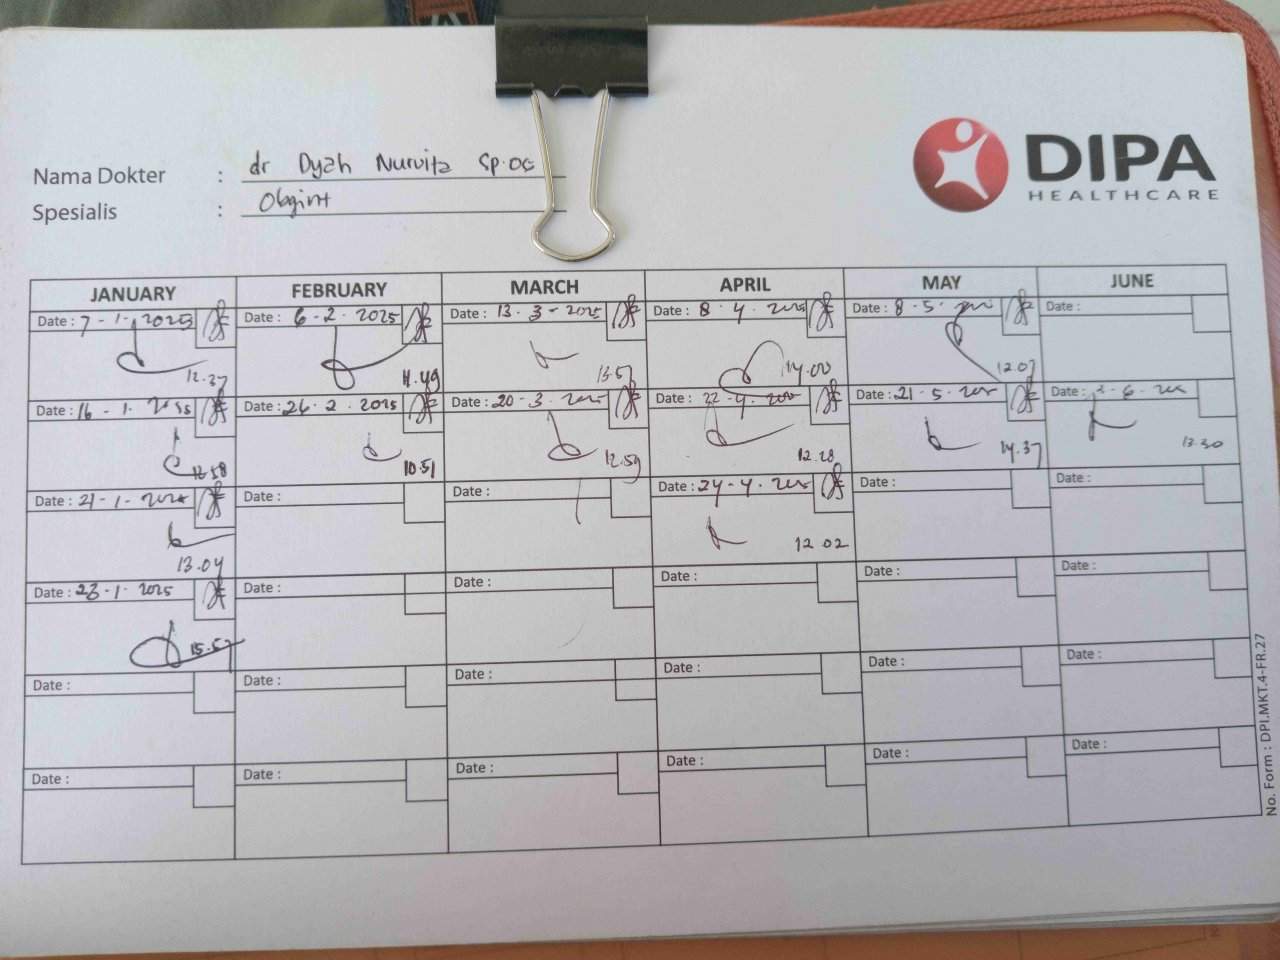 DIPA
HEALTHCARE
Nama Dokter : dr Dyah Nurvita Sp.OG
Spesialis : Obgin
JANUARY FEBRUARY MARCH APRIL MAY JUNE
Date : 7 - 1 - 2025 Date : 6 - 2 - 2025 Date : 13 - 3 - 2025 Date : 8 - 4 - 2025 Date : 8 - 5 - Date :
12.37 11.49 13.57 14.00 12.07
Date : 16 - 1 - Date : 26 - 2 - 2025 Date : 20 - 3 - 2025 Date : 22 - 4 - Date : 21 - 5 - Date :
10.51 12.59 12.28 14.37
Date : 21 - 1 - 2025 Date : Date : Date : 24 - 4 - Date : Date :
13.04 12.02
Date : 23 - 1 - 2025 Date : Date : Date : Date : Date :
15.57
Date : Date : Date : Date : Date : Date :
Date : Date : Date : Date : Date : Date :
No. Form : DPI.MKT.4-FR.27